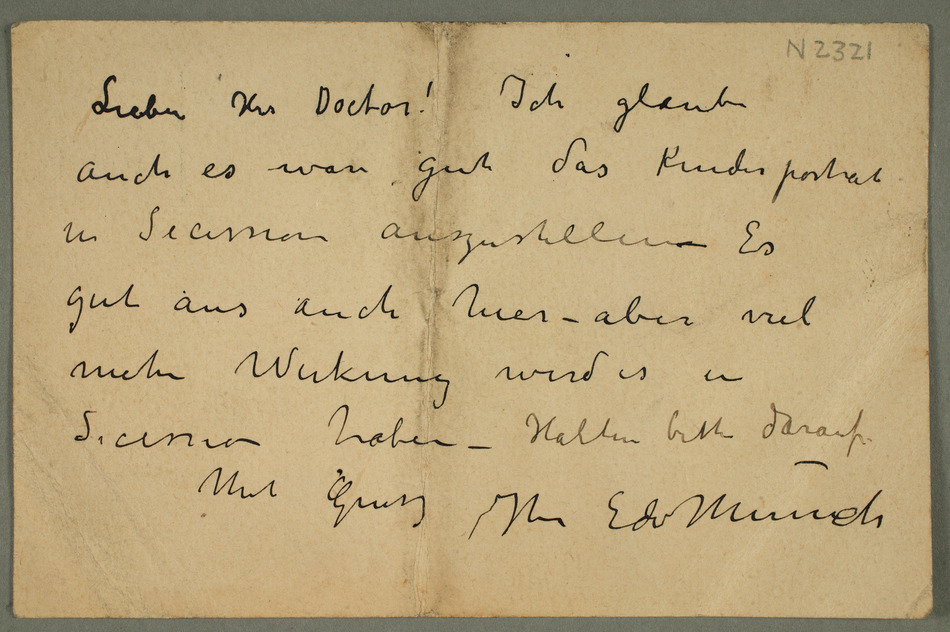 N 2321
Lieber Her Doctor! Ich glaube
auch es war gut das Kinderportrat
in Secession auszustellen – Es
gut aus auch hier – aber viel
mehr Wirkung wird es in
Secession haben – Halten bitte darauf.
Mit Grutz Ihr Edv Munch